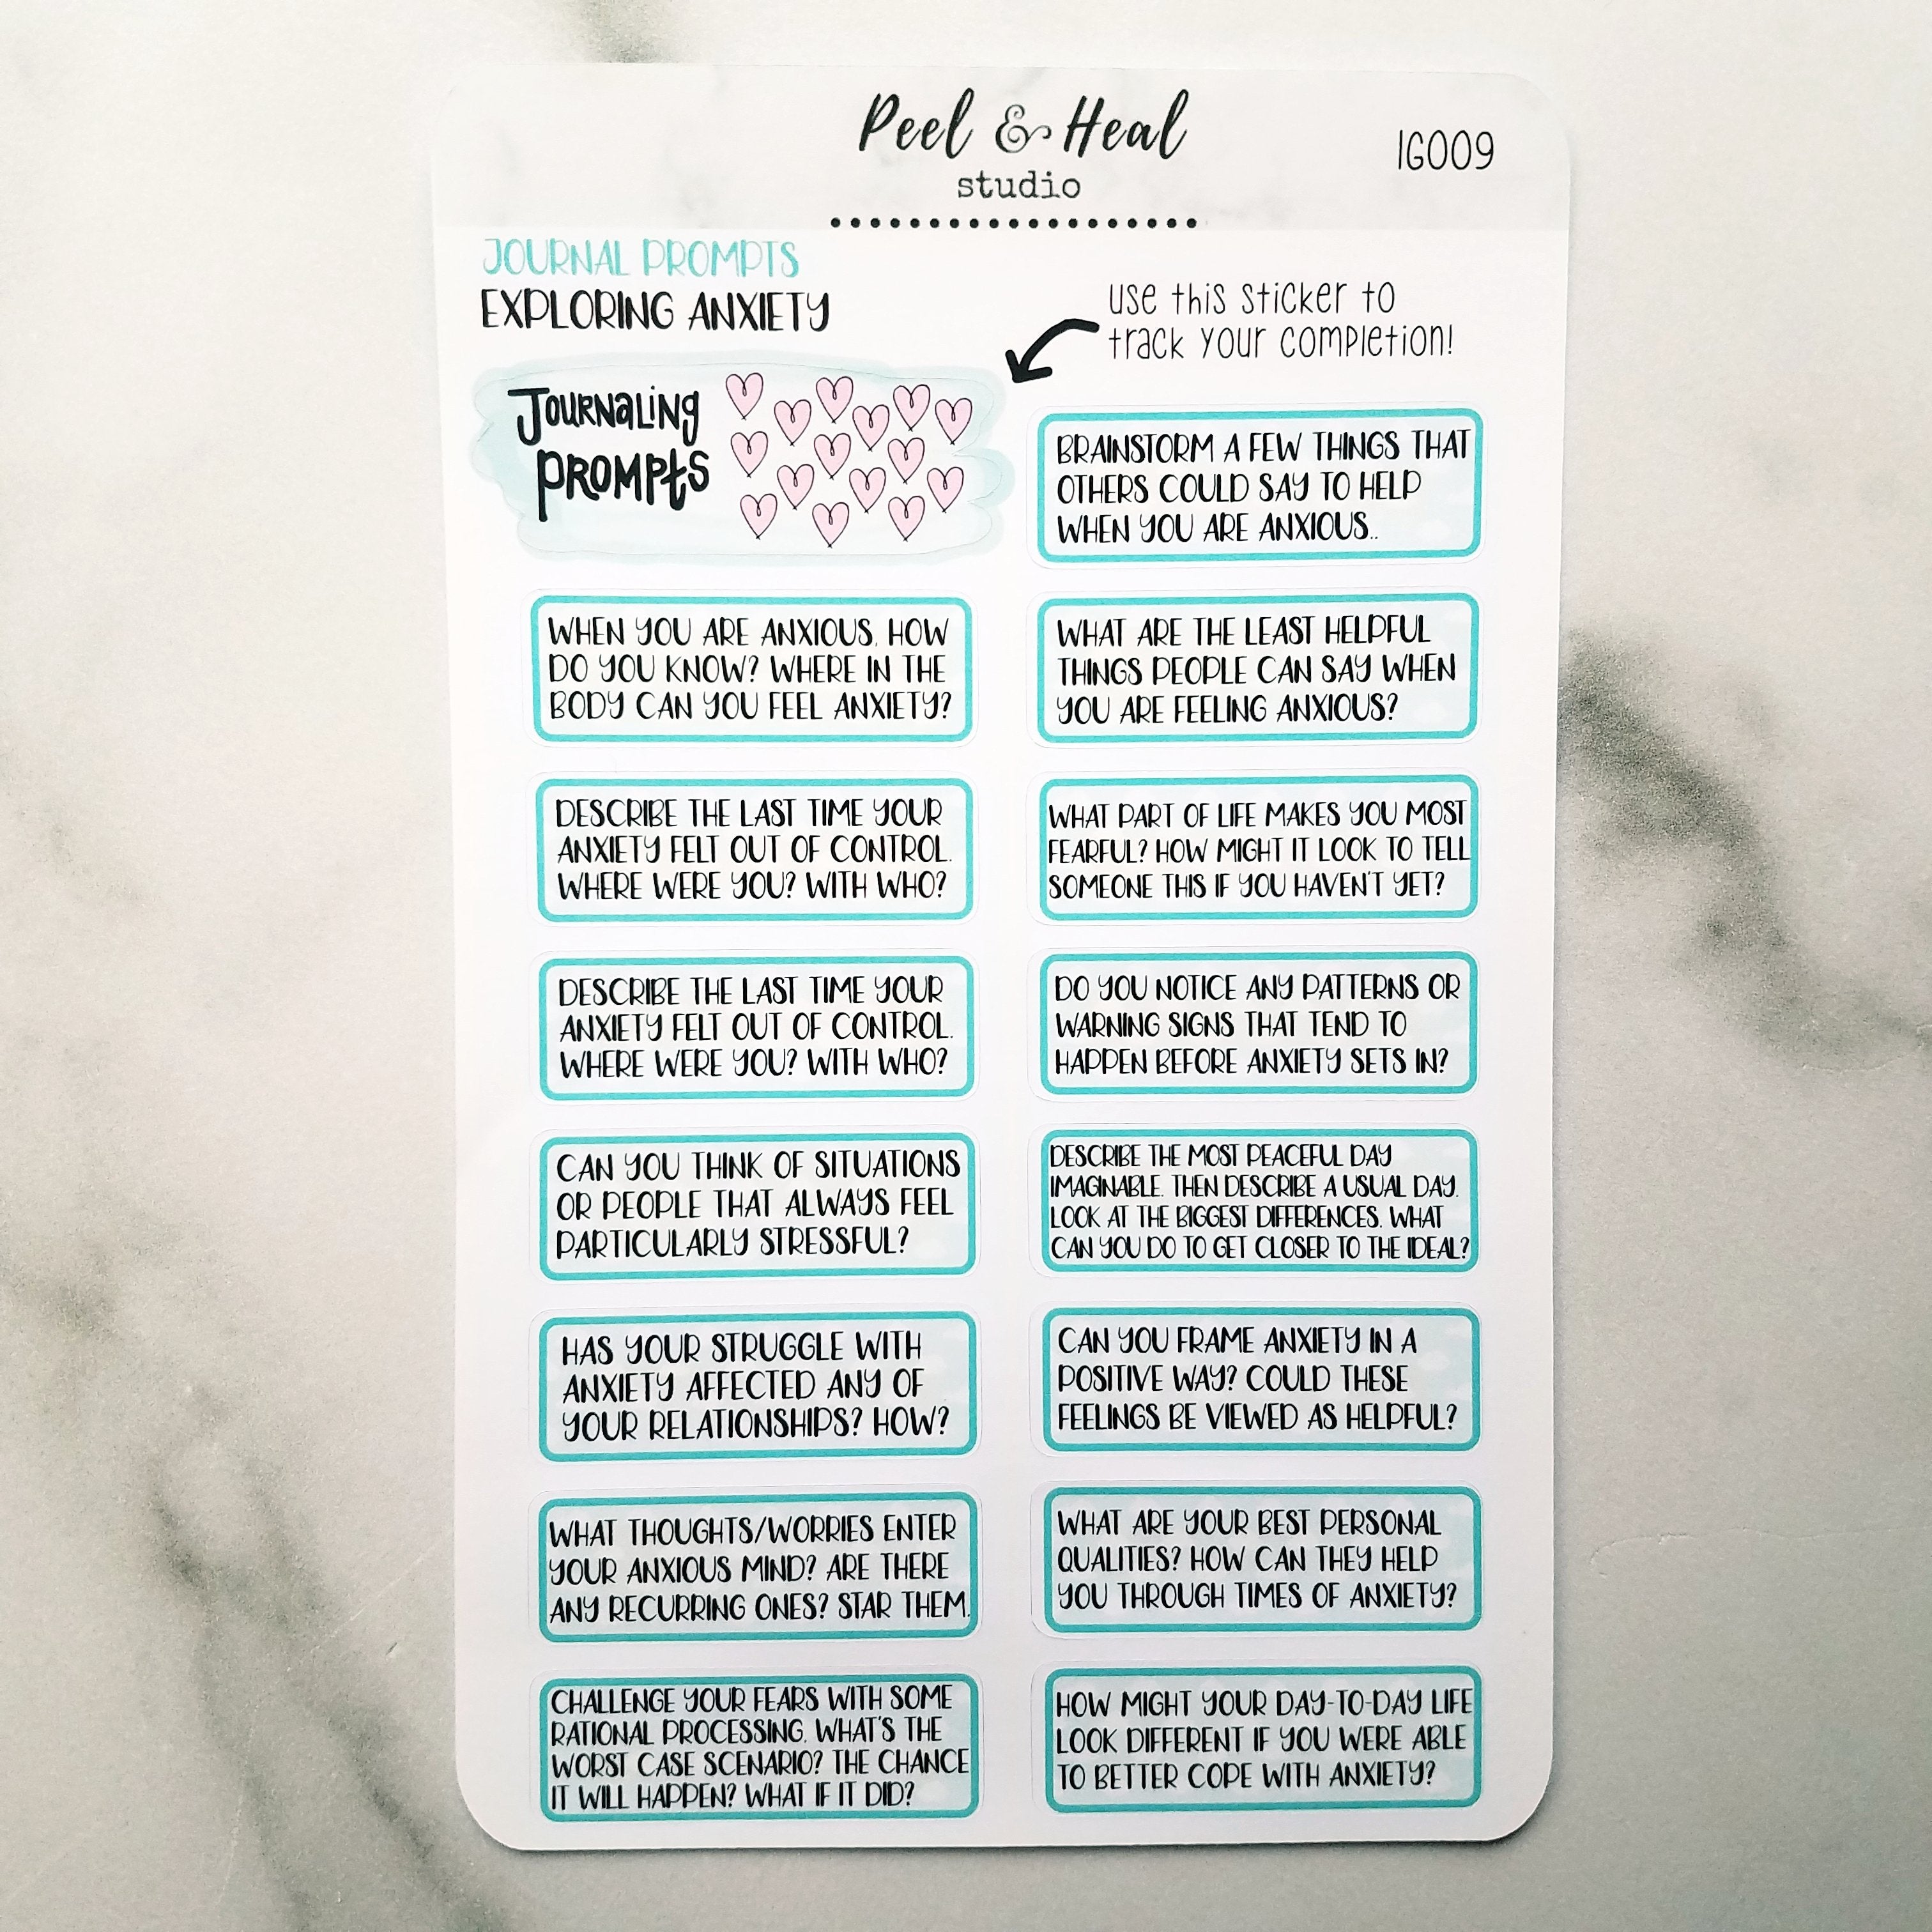 Peel & Heal
studio
IG009
JOURNAL PROMPTS
EXPLORING ANXIETY
use this sticker to
track your completion!
JOURNALING
PROMPTS
WHEN YOU ARE ANXIOUS, HOW
DO YOU KNOW? WHERE IN THE
BODY CAN YOU FEEL ANXIETY?
DESCRIBE THE LAST TIME YOUR
ANXIETY FELT OUT OF CONTROL.
WHERE WERE YOU? WITH WHO?
DESCRIBE THE LAST TIME YOUR
ANXIETY FELT OUT OF CONTROL.
WHERE WERE YOU? WITH WHO?
CAN YOU THINK OF SITUATIONS
OR PEOPLE THAT ALWAYS FEEL
PARTICULARLY STRESSFUL?
HAS YOUR STRUGGLE WITH
ANXIETY AFFECTED ANY OF
YOUR RELATIONSHIPS? HOW?
WHAT THOUGHTS/WORRIES ENTER
YOUR ANXIOUS MIND? ARE THERE
ANY RECURRING ONES? STAR THEM.
CHALLENGE YOUR FEARS WITH SOME
RATIONAL PROCESSING. WHAT'S THE
WORST CASE SCENARIO? THE CHANCE
IT WILL HAPPEN? WHAT IF IT DID?
BRAINSTORM A FEW THINGS THAT
OTHERS COULD SAY TO HELP
WHEN YOU ARE ANXIOUS..
WHAT ARE THE LEAST HELPFUL
THINGS PEOPLE CAN SAY WHEN
YOU ARE FEELING ANXIOUS?
WHAT PART OF LIFE MAKES YOU MOST
FEARFUL? HOW MIGHT IT LOOK TO TELL
SOMEONE THIS IF YOU HAVEN'T YET?
DO YOU NOTICE ANY PATTERNS OR
WARNING SIGNS THAT TEND TO
HAPPEN BEFORE ANXIETY SETS IN?
DESCRIBE THE MOST PEACEFUL DAY
IMAGINABLE. THEN DESCRIBE A USUAL DAY.
LOOK AT THE BIGGEST DIFFERENCES. WHAT
CAN YOU DO TO GET CLOSER TO THE IDEAL?
CAN YOU FRAME ANXIETY IN A
POSITIVE WAY? COULD THESE
FEELINGS BE VIEWED AS HELPFUL?
WHAT ARE YOUR BEST PERSONAL
QUALITIES? HOW CAN THEY HELP
YOU THROUGH TIMES OF ANXIETY?
HOW MIGHT YOUR DAY-TO-DAY LIFE
LOOK DIFFERENT IF YOU WERE ABLE
TO BETTER COPE WITH ANXIETY?